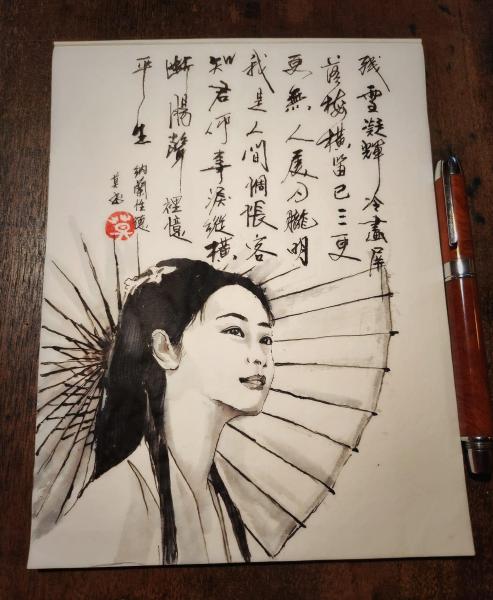 殘雪凝輝冷畫屏
落梅橫笛已三更
更無人處月朧明
我是人間惆悵客
知君何事淚縱橫
斷腸聲裡憶
平生
納蘭性德